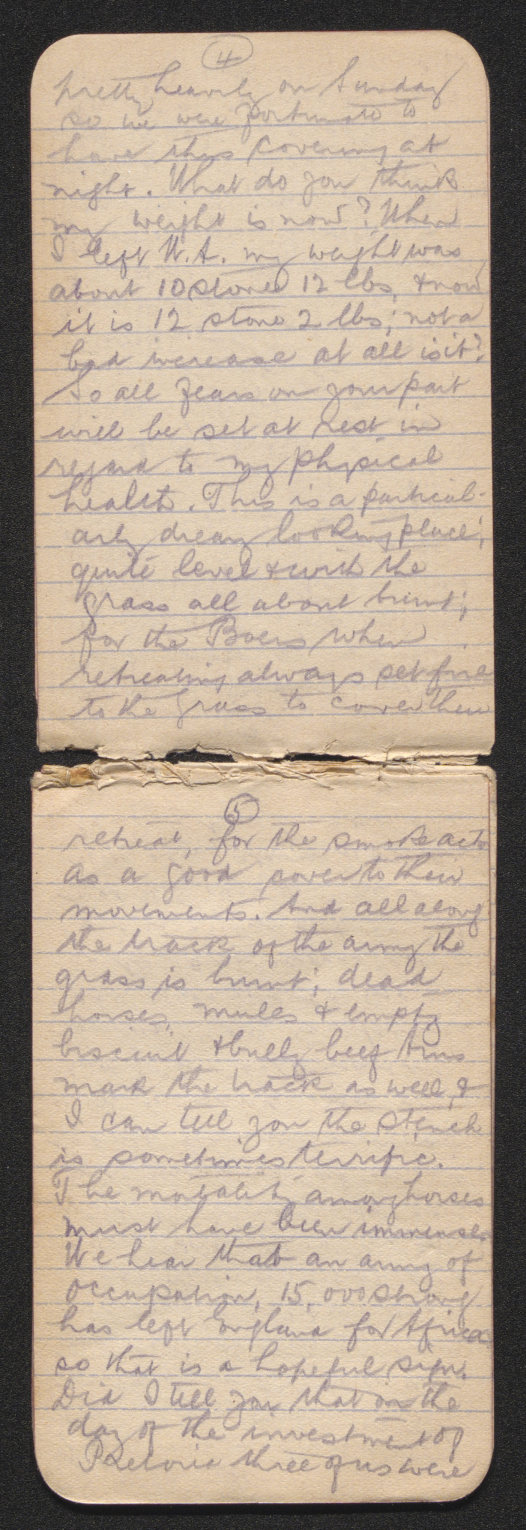 4
pretty heavily on Sunday
so we were fortunate to
have this covering at
night. What do you think
my weight is now? When
I left W.A. my weight was
about 10 stone 12 lbs, & now
it is 12 stone 2 lbs; not a
bad increase at all is it?
So all fears on your part
will be set at rest in
regard to my physical
health. This is a particul-
arly dreary looking place;
quite level & with the
grass all about burnt;
for the Boers when
retreating always set fire
to the grass to cover their
5
retreat, for the smoke acts
as a good cover to their
movements. And all along
the track of the army the
grass is burnt; dead
horses, mules & empty
biscuit & bully beef tins
mark the track as well, &
I can tell you the stench
is sometimes terrific.
The mortality among horses
must have been immense.
We hear that an army of
occupation, 15,000 strong
has left England for Africa
so that is a hopeful sign.
Did I tell you that on the
day of the investment of
Pretoria three of us were